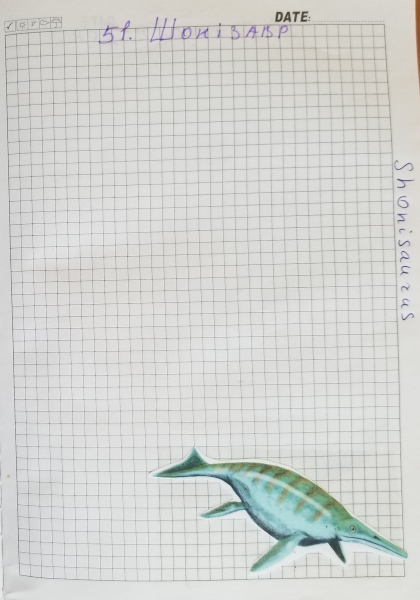 DATE:
51. Шонізавр
Shonisaurus